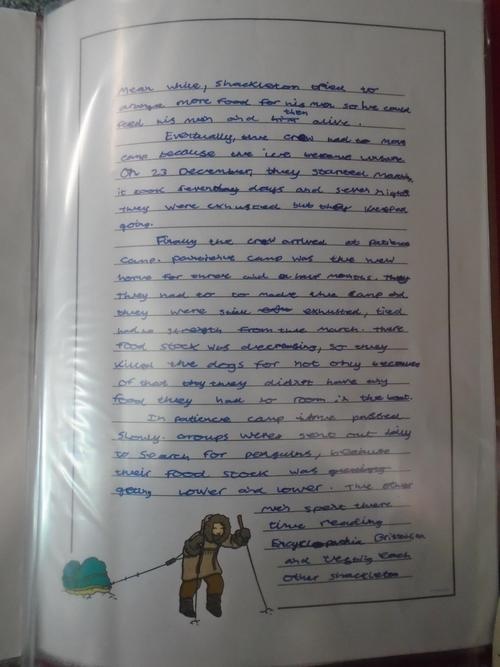 Mean while, Shackleton tried to
arange more food for his men so he could
feed his men and then alive.
Eventually, the crew had to move
camp because the ice became unsafe.
On 23 December, they started march,
it took seven days and seven nights
They were exhusted but they keeped
going.
Finally the crew arrived at patience
camp. patience camp was the new
home for three and a half months. They
They had to to made the camp and
they were still exhusted, tied
had no strength from the march. There
food stock was decreasing, so they
killed the dogs for not only because
of that they didnt have any
food they had no room in the boat.
In patience camp time passed
slowly. Groups were sent out daily
to search for penguins, because
their food stock was
getting lower and lower. The other
men spent there
time reading
Encyclopedia Britanica
and each
other Shackleton